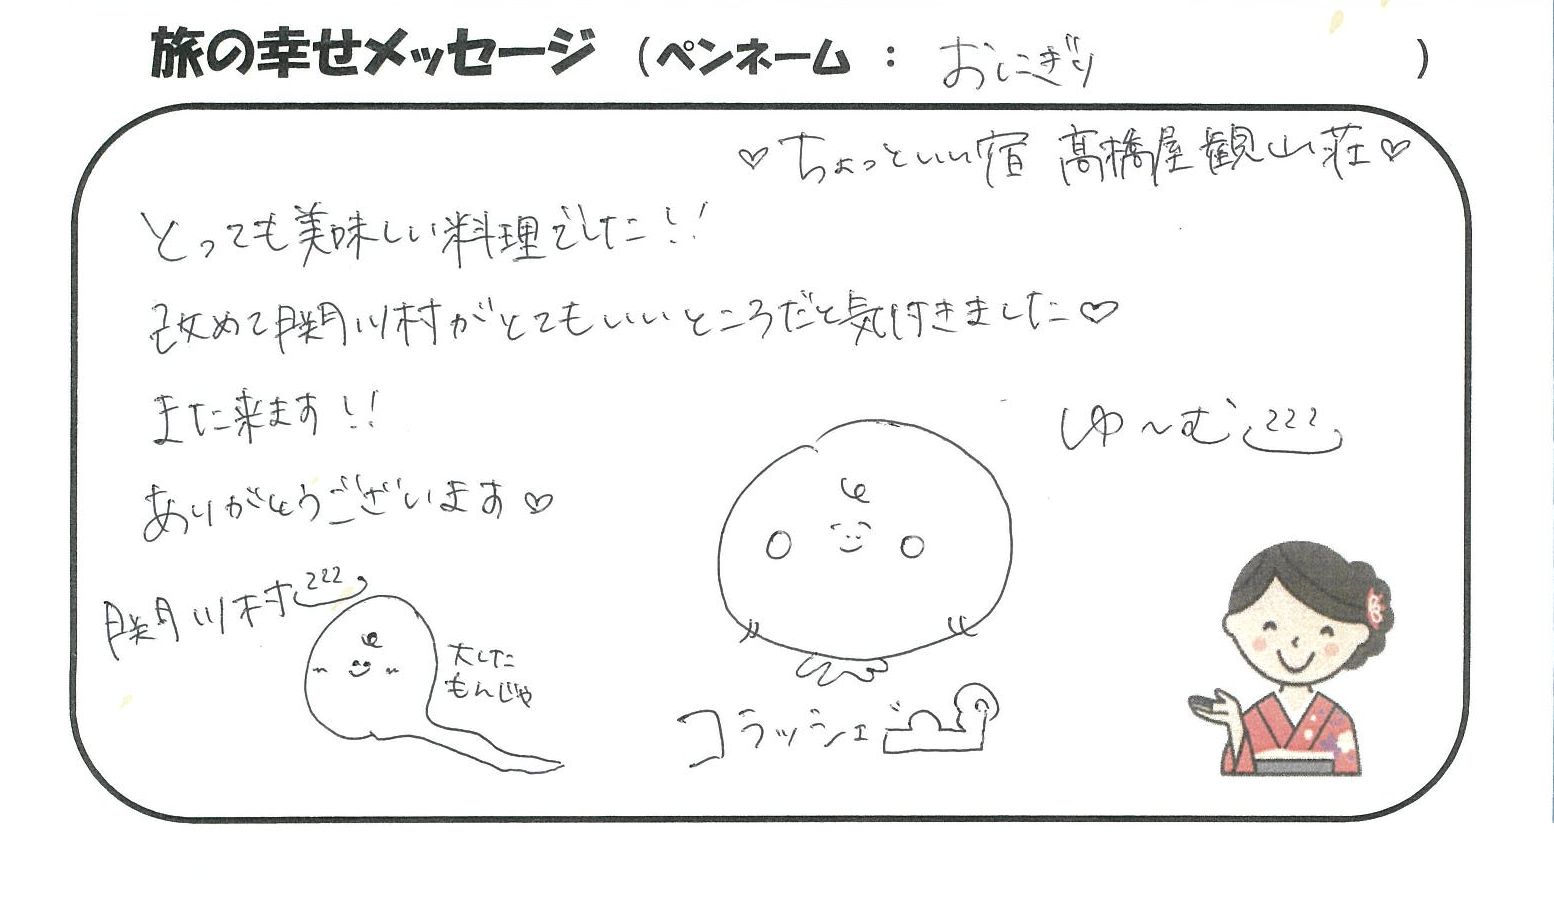 旅の幸せメッセージ (ペンネーム : おにぎり )
♡ちょっといい宿 髙橋屋観山荘♡
とっても美味しい料理でした!!
改めて関川村がとてもいいところだと気付きました♡
また来ます!!
ゆ〜む
ありがとうございます♡
関川村
大した
もんじゃ
コラッシェ